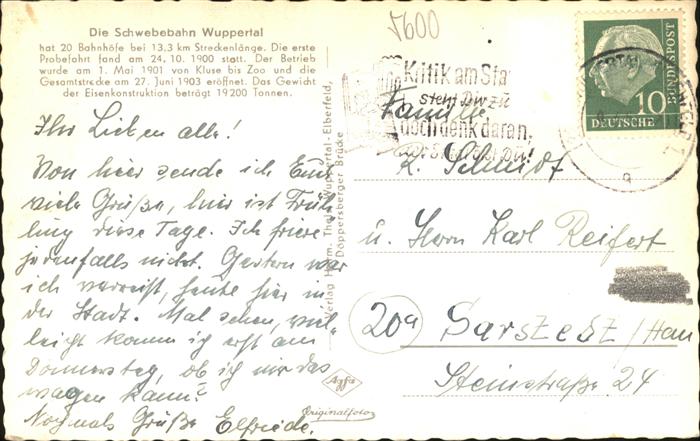 5600
Die Schwebebahn Wuppertal
hat 20 Bahnhöfe bei 13,3 km Streckenlänge. Die erste
Probefahrt fand am 24. 10. 1900 statt. Der Betrieb
wurde am 1. Mai 1901 von Kluse bis Zoo und die
Gesamtstrecke am 27. Juni 1903 eröffnet. Das Gewicht
der Eisenkonstruktion beträgt 19200 Tonnen.
Ihr Lieben alle!
Von hier sende ich Euch
viele Grüße, hier ist Früh-
ling diese Tage. Ich friere
jedenfalls nicht. Gestern war
ich verreist, heute hier in
der Stadt. Mal sehen, viel-
leicht komm ich erst am
Donnerstag, ob ich mir das
wagen kann?
Nochmals Grüße Elfriede.
Verlag Herm. Wuppertal-Elberfeld,
Döppersberger Brücke
Agfa
Originalfoto
Kritik am Sta
steht Dir zu
doch denk daran,
Du!
DEUTSCHE
BUNDESPOST
10
a
Familie
K. Schmidt
u. Herrn Karl Reifert
20a Sarstedt/Han
Steinstraße 24